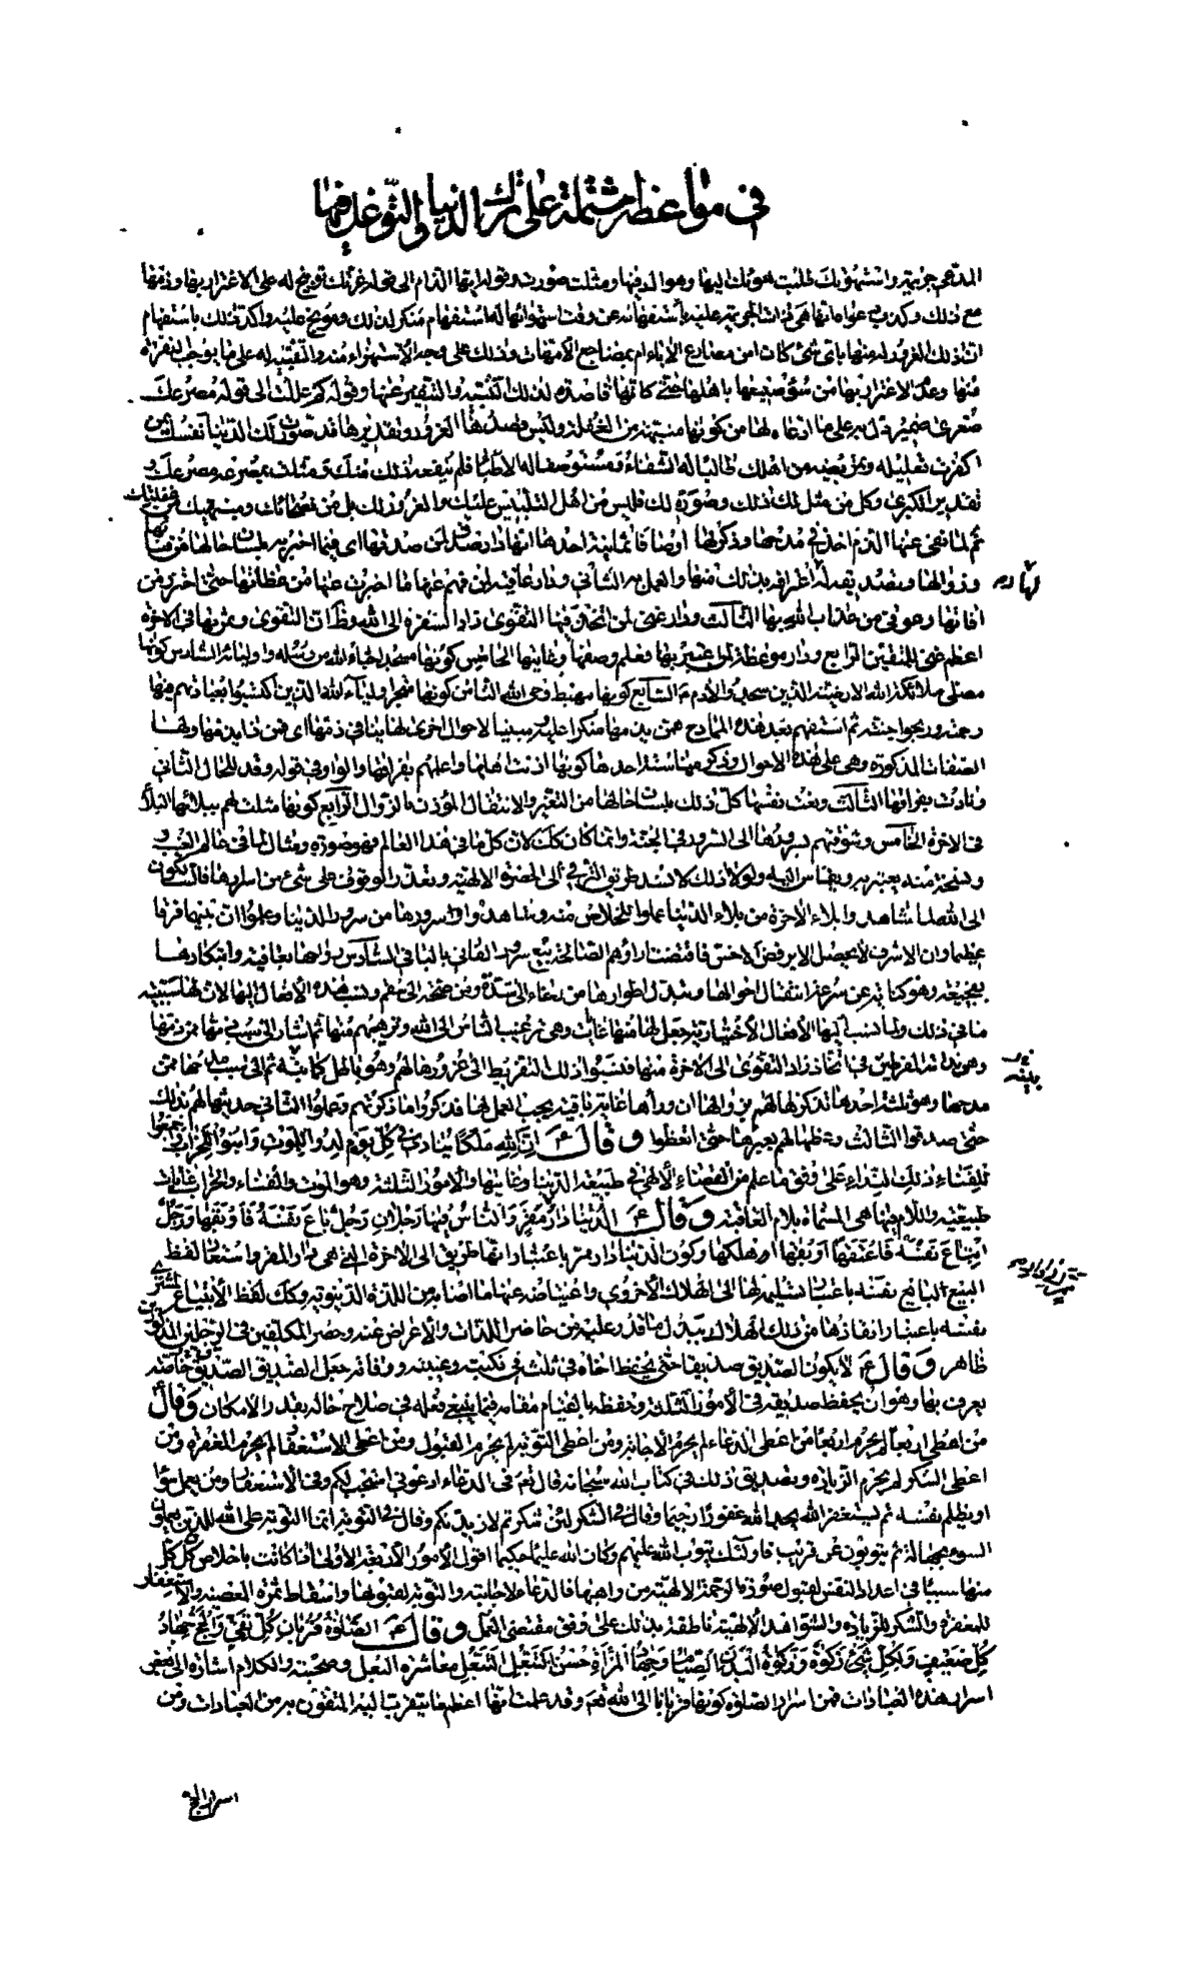 في مواعظ مشتملة على ترك الدنيا والتوغل فيها
المدعى جزئية واستهوتك طلبت هوتك اليها وهو الدفيها ومثلت صورت وقوله ايها الذام الى قوله غرتك توبيخ له على الاغترار بها وذمها
مع ذلك وكذب دعواه انها هي استفهامه عن وقت استهوائها له استفهام منكر لذلك وموبخ عليه واكد ذلك باستفهام
ان ذلك الغرور له منها باى شئ كان امن مصارع الاباء ام بمضاجع الامهات وذلك على وجه الاستهزاء منه والتنبيه له على ما يوجب النفرة
منها وعدم الاغترار بها من سوء صنيعها باهلها حتى كانها قاصدة لذلك التنبيه والتنفير عنها وقوله كم عللت الى قوله مصرعك
صغرى ضمير دل به على ما ادعاه لها من كونها منبهة من الغفلة وليس قصدها الغرور وتقديرها قد صورت لك الدنيا نفسك بمن
اكثرت تعليله وتمريضه من اهلك طالبا له الشفاء ومستوصفا له الاطباء فلم ينفعه ذلك منك ومثلت بمصرعه مصرعك و
تقدير الكبرى وكل من مثل لك ذلك وصوره لك فليس من اهل التلبيس عليك والغرور لك بل من نصحائك ومنبهيك من غفلتك
ثم لما نهى عنها الذم اخذ في مدحها وذكر لها اوصافا ثمانية احدها انها دار صدق لمن صدقها اى فيما اخبر به بلسان حالها من فنائها
وزوالها وتصديقه له اعترافه بذلك منها والعمل به الثاني ودار عافية لمن فهم عنها ما اخبرت عنها من عظاتها حتى احترز من
افاتها وعوفى من عذاب الله بها الثالث ودار غنى لمن اتخذ فيها التقوى زادا لسفره الى الله وظاهر ان التقوى وثمرتها في الاخرة
اعظم غنى للمتقين الرابع ودار موعظة لمن اعتبر بها فعلم وصفها وغايتها الخامس كونها مسجد احباء الله من رسله واوليائه السادس كونها
مصلى ملائكة الله الارضية الذين سجدوا لادم السابع كونها مهبط وحى الله الثامن كونها متجر اولياء الله الذين اكتسبوا بعباداتهم فيها
رحمته وربحوا جنته ثم استفهم بعد هذه الممادح عمن يذمها منكرا عليه مبينا لاحوال اخرى لها ينافي ذمها اى فمن ذا يذمها ولها
الصفات المذكورة وهي على هذه الاحوال وذكر منها ستة احدها كونها اذنت اهلها واعلمهم بفراقها والواو في قوله وقد للحال الثاني
ونادت بفراقها الثالث ونعت نفسها كل ذلك بلسان حالها من التغير والانتقال المؤذن بالزوال الرابع كونها مثلت لهم ببلائها البلاء
في الاخرة الخامس وشوقتهم بسرورها الى السرور في الجنة وانما كان كذلك لان كل ما في هذا العالم فهو صورة ومثال لما في عالم الغيب و
ونسخة منه يعتبر به ويقاس اليه ولولا ذلك لانسد طريق الترقي الى الحضرة الالهية وتعذر الوقوف على شئ من اسرارها
الى الله شاهدوا بلاء الاخرة من بلاء الدنيا عملوا للخلاص منه وشاهدوا سرورها من سرور الدنيا وعلموا ان بينهما فرقا
عظيما وان الاشرف لا يحصل الا برفض الاخس فاقتضت اراؤهم الصائبة بيع سرورها الفاني بالباقي السادس رواحها بعافية وابتكارها
بفجيعة وهو كناية عن سرعة انتقال احوالها وتبدل اطوارها من رخاء الى شدة ومن صحة الى سقم ونسب هذه الافعال اليها لان لها سببية
ما في ذلك ولما نسب اليها الافعال الاختيارية جعل لها منها غايات وهي ترغيب الناس الى الله وترهيبهم منها ثم اشار الى سبب ذمها ممن ذمها
وهو ندامة المفرطين في اتخاذ زاد التقوى الى الاخرة منها فنسبوا ذلك التفريط الى غرورها لهم وهو بالهم ثم الى سبب مدحها ممن
مدحها وهو ثلثة احدها تذكيرها لهم بزوالها ان وراءها غاية باقية يجب العمل لها فذكروا ما ذكرتهم وعملوا الثاني حديثها لهم بذلك
حتى صدقوا الثالث وعظها لهم بعبرها حتى اتعظوا وقال ع ان لله ملكا ينادى في كل يوم لدوا للموت وابنوا للخراب واجمعوا
للفناء ذلك النداء على وفق ما علم من القضاء الالهى في طبيعة الدنيا وغايتها والامور الثلثة وهو الموت والفناء والخراب غايات
طبيعية واللام فيها هي المسماة بلام العاقبة وقال ع الدنيا دار ممر والناس فيها رجلان رجل باع نفسه فاوبقها ورجل
ابتاع نفسه فاعتقها اوبقها اهلكها وكون الدنيا دار ممر باعتبار انها طريق الى الاخرة التي هي دار المقر واستعار لفظ
البيع البائع نفسه باعتبار تسليمه لها الى الهلاك الاخروى واعتياضه عنها ما اصابه من اللذة الدنيوية وكذلك لفظ الابتياع لمشترى
نفسه باعتبار انقاذها من ذلك الهلاك ببذل ما قدر عليه من حاضر اللذات والاعراض عنه وحصر المكلفين في الرجلين المذكورين
ظاهر وقال ع لا يكون الصديق صديقا حتى يحفظ اخاه في ثلث في نكبته وغيبته ووفاته جعل للصديق الصديق خاصة
يعرف بها وهو ان يحفظ صديقه في الامور الثلثة وحفظه بالقيام مقامه فيما ينبغي فعله في صلاح حاله بقدر الامكان وقال
من اعطى اربعا لم يحرم اربعا من اعطى الدعاء لم يحرم الاجابة ومن اعطى التوبة لم يحرم القبول ومن اعطى الاستغفار لم يحرم المغفرة ومن
اعطى الشكر لم يحرم الزيادة وتصديق ذلك في كتاب الله سبحانه قال تعم في الدعاء ادعوني استجب لكم وفي الاستغفار ومن يعمل سوءا
او يظلم نفسه ثم يستغفر الله يجد الله غفورا رحيما وقال في الشكر لئن شكرتم لازيدنكم وقال في التوبة انما التوبة على الله للذين يعملون
السوء بجهالة ثم يتوبون من قريب فاولئك يتوب الله عليهم وكان الله عليما حكيما اقول الامور الاربعة الاولى اذا كانت باخلاص كل
منها سببا في اعداد النفس لقبول صورة الرحمة الالهية من واهبها فالدعاء لاجابته والتوبة لقبولها واسقاط ثمرة المعصية والاستغفار
للمغفرة والشكر للزيادة والشواهد الالهية ناطقة بذلك على وفق مقتضى العمل وقال ع الصلوة قربان كل تقي والحج جهاد
كل ضعيف ولكل شئ زكوة وزكوة البدن الصيام وجهاد المراة حسن التبعل التبعل معاشرة البعل وصحبته والكلام اشارة الى بعض
اسرار هذه العبادات فمن اسرار الصلوة كونها قربانا الى الله تعم وقد علمت انها اعظم ما يتقرب اليه المتقون به من العبادات ومن
اسرار الحج